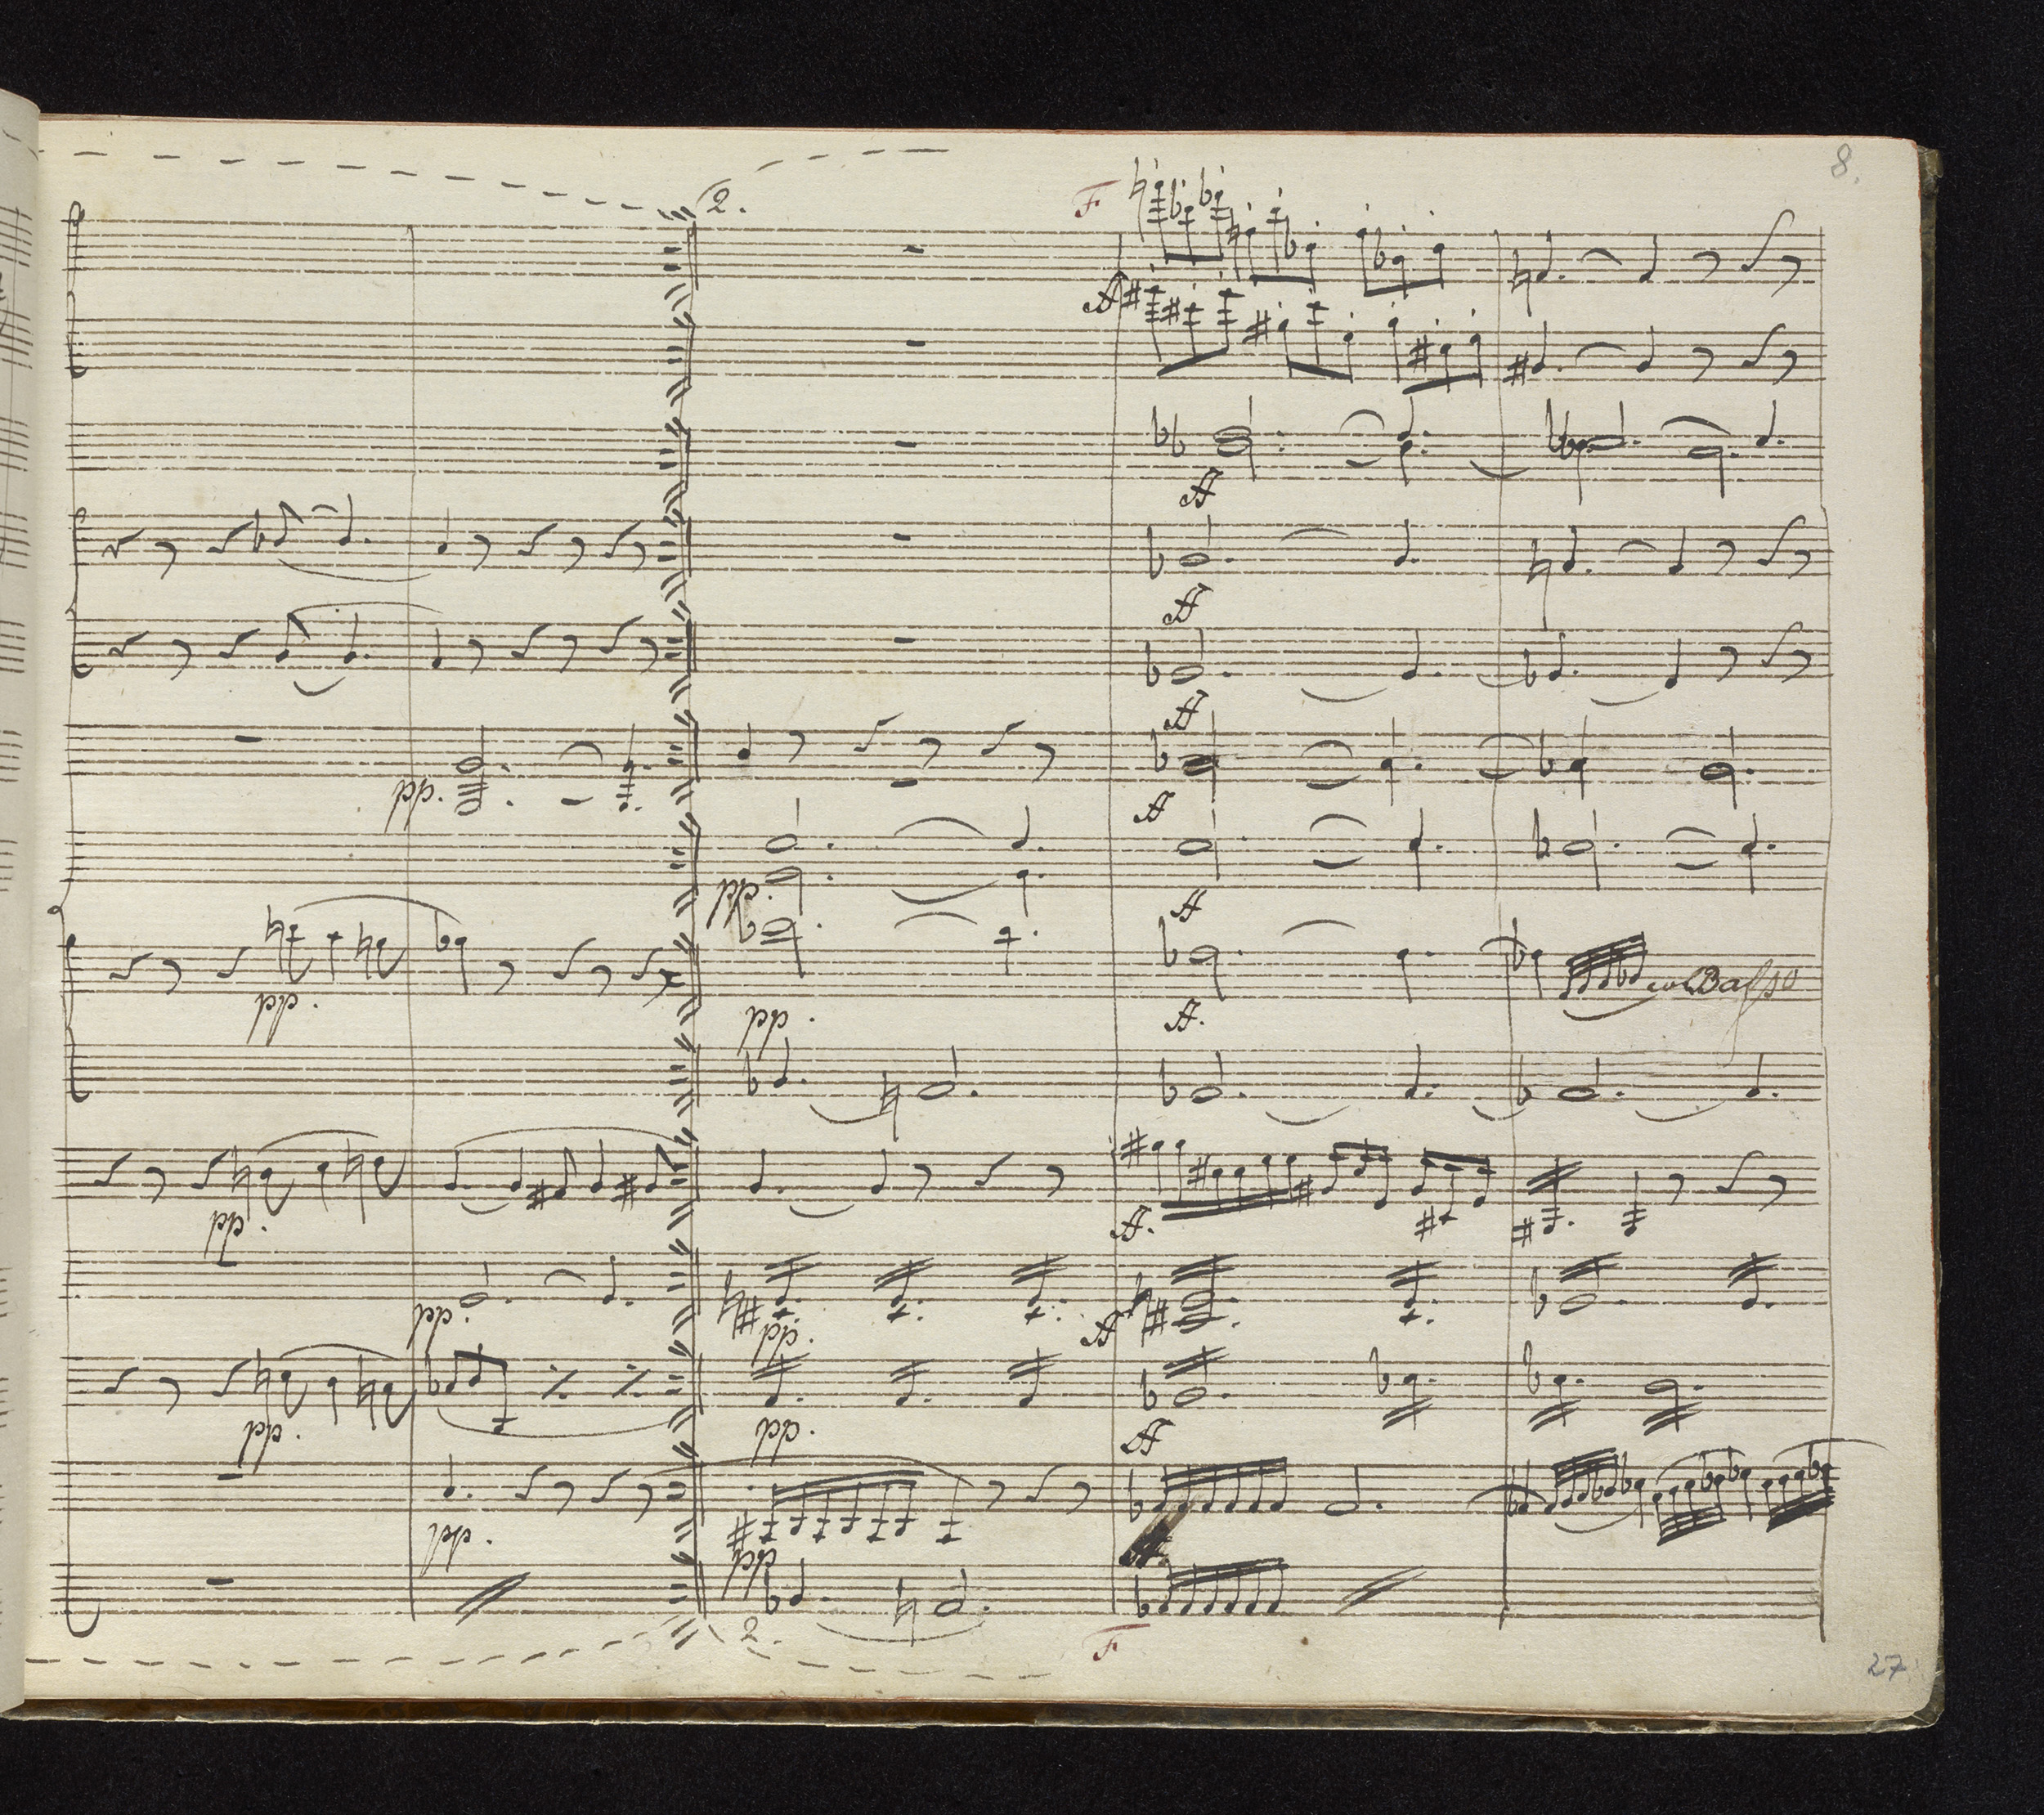 8.
2.
F
ff
ff
ff
ff
pp.
ff
pp.
ff
pp.
pp.
ff.
col Basso
pp.
ff.
pp.
pp.
ff
pp.
pp.
ff
pp.
pp
2.
F
27